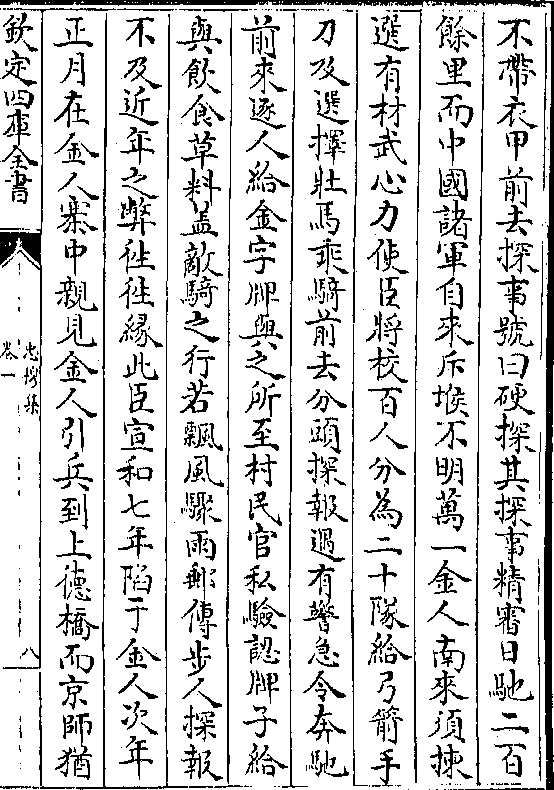 不帶衣甲前去探事號曰硬探其探事精審日馳二百
餘里而中國諸軍自來斥堠不明萬一金人南來須揀
選有材武心力使臣將校百人分為二十隊給弓箭手
刀及選擇壯馬乘騎前去分頭探報遇有警急令奔馳
前來逐人給金字牌與之所至村民官私驗認牌子給
與飲食草料盖敵騎之行若飄風驟雨郵傳步人探報
不及近年之弊徃徃緣此臣宣和七年陷于金人次年
正月在金人寨中親見金人引兵到上德橋而京師猶
欽定四庫全書
忠穆集
卷一
八